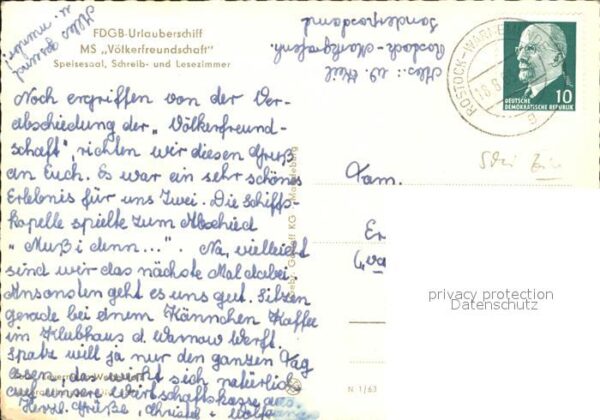 FDGB-Urlauberschiff
MS „Völkerfreundschaft"
Speisesaal, Schreib- und Lesezimmer
Noch ergriffen von der Ver-
abschiedung der „Völkerfreund-
schaft", richten wir diesen Gruß
an Euch. Es war ein sehr schönes
Erlebnis für uns Zwei. Die Schiffs-
kapelle spielte zum Abschied
„Muß i denn...". Na, vielleicht
sind wir das nächste Mal dabei.
Ansonsten geht es uns gut. Sitzen
gerade bei einem Kännchen Kaffee
im Klubhaus d. Warnow Werft.
Spatz will ja nur den ganzen Tag
essen, das wirkt sich natürlich
auf unsere Wirtschaftskasse aus
Herzl. Grüße,
Abs.: W.
Rostock-
Sonderpostamt
ROSTOCK-WARNEMÜNDE
DEUTSCHE
DEMOKRATISCHE REPUBLIK
10
Fam.
privacy protection
Datenschutz
N 1/63